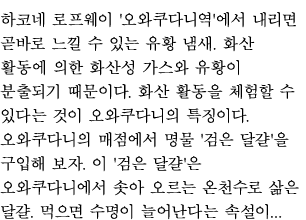 하코네 로프웨이 '오와쿠다니역'에서 내리면
곧바로 느낄 수 있는 유황 냄새. 화산
활동에 의한 화산성 가스와 유황이
분출되기 때문이다. 화산 활동을 체험할 수
있다는 것이 오와쿠다니의 특징이다.
오와쿠다니의 매점에서 명물 '검은 달걀'을
구입해 보자. 이 '검은 달걀'은
오와쿠다니에서 솟아 오르는 온천수로 삶은
달걀. 먹으면 수명이 늘어난다는 속설이...